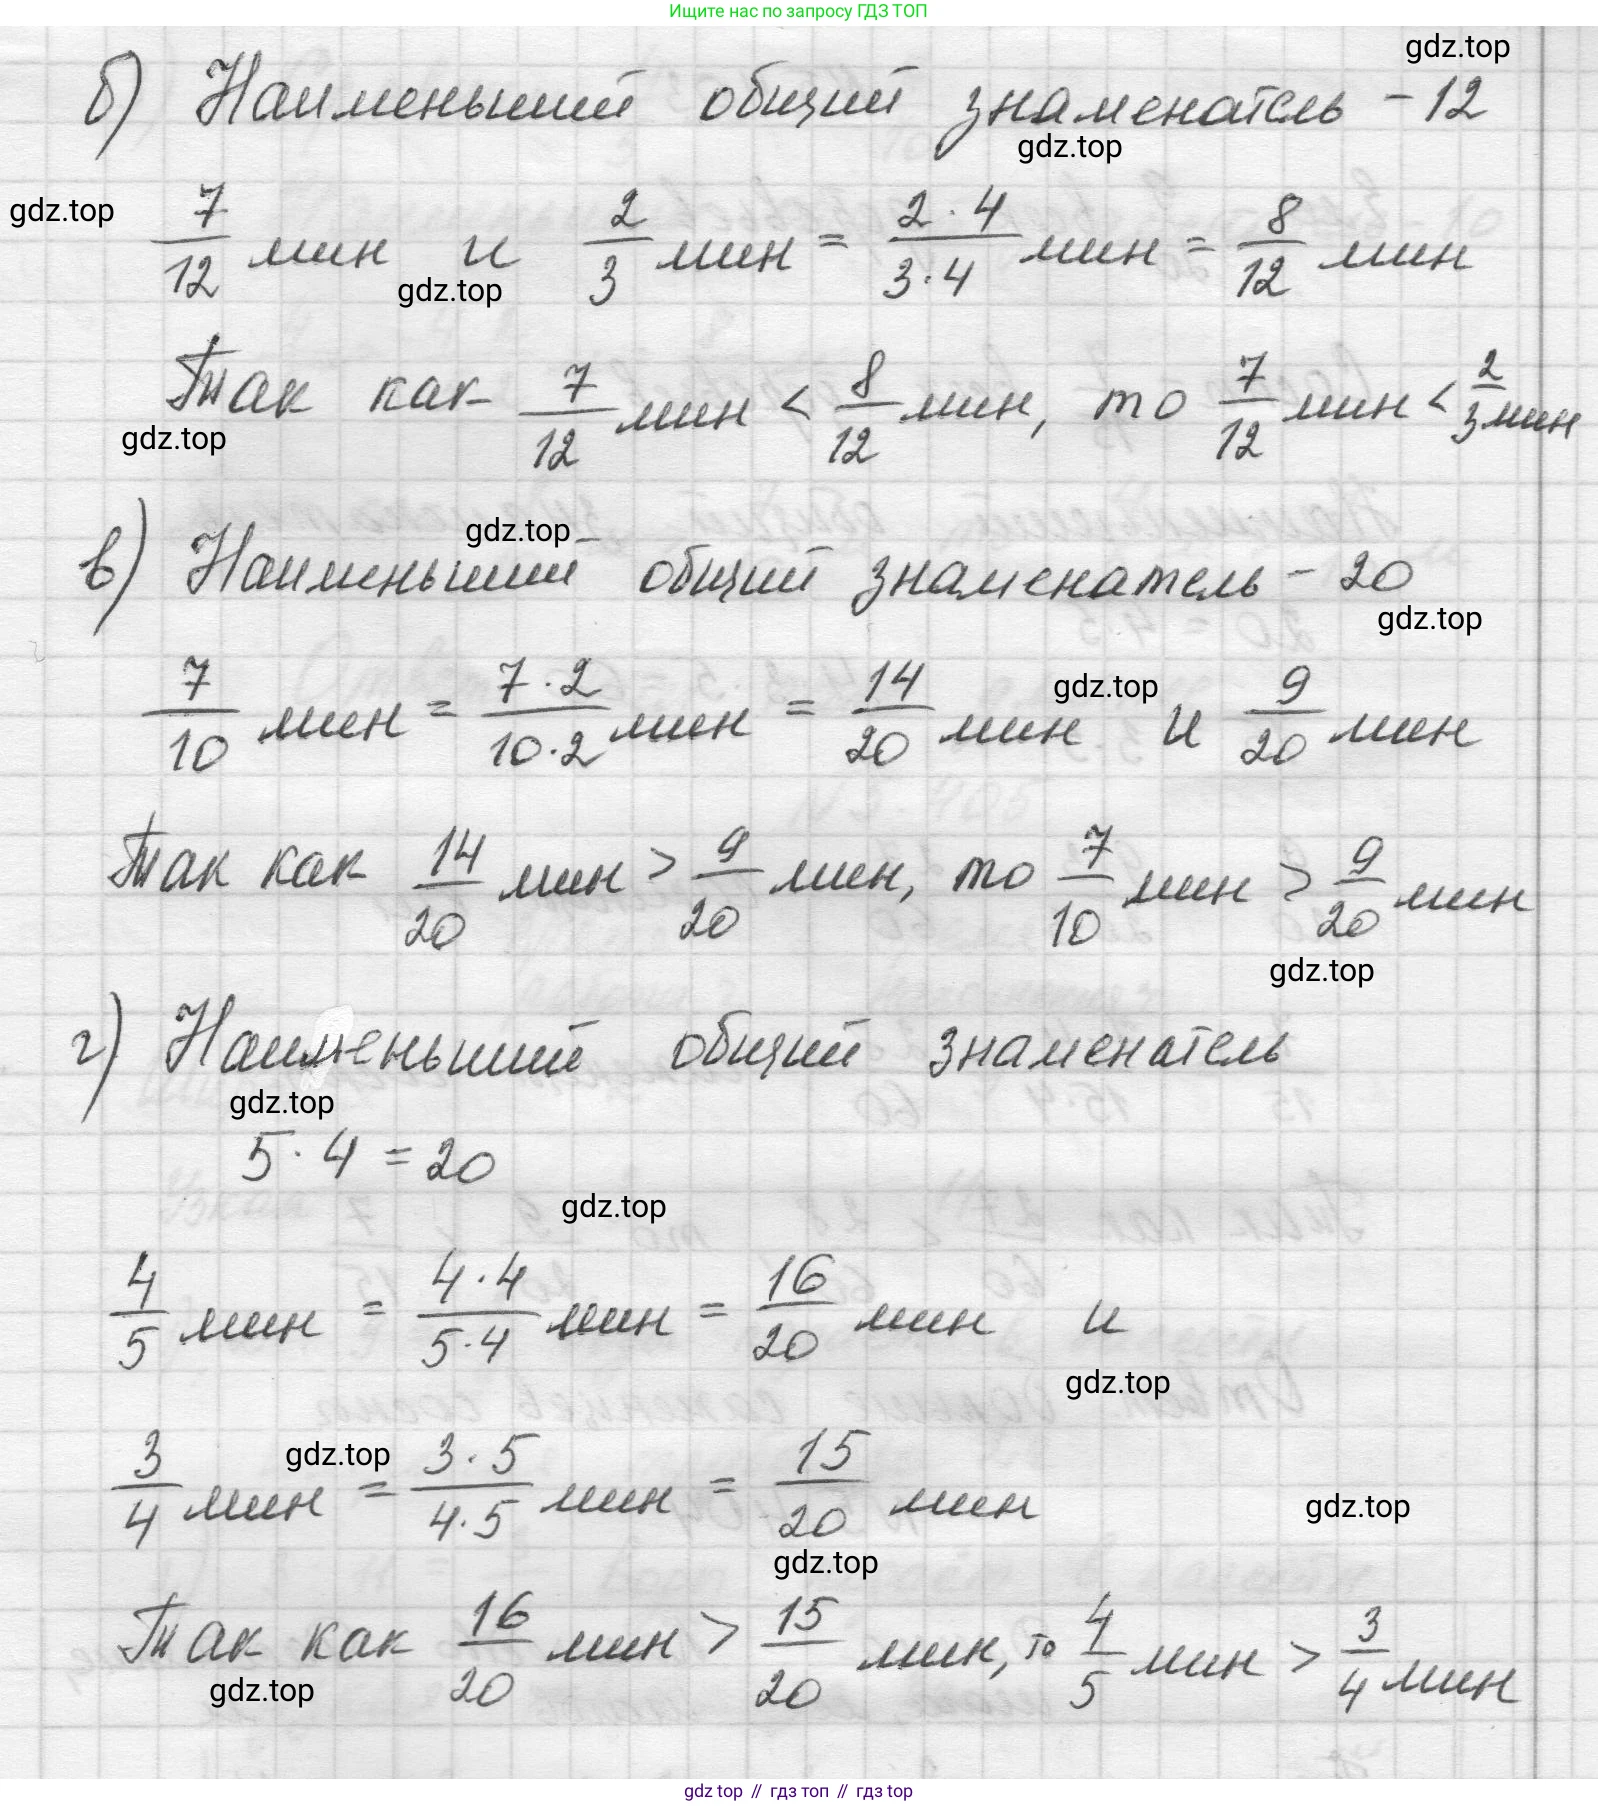 Ищите нас по запросу ГДЗ ТОП
gdz.top
б) Наименьший общий знаменатель - 12
gdz.top
gdz.top
7/12 мин и 2/3 мин = 2·4/3·4 мин = 8/12 мин
gdz.top
Так как 7/12 мин < 8/12 мин, то 7/12 мин < 2/3 мин
gdz.top
gdz.top
в) Наименьший общий знаменатель - 20
gdz.top
7/10 мин = 7·2/10·2 мин = 14/20 мин и 9/20 мин
gdz.top
Так как 14/20 мин > 9/20 мин, то 7/10 мин > 9/20 мин
gdz.top
г) Наименьший общий знаменатель
gdz.top
5·4 = 20
gdz.top
4/5 мин = 4·4/5·4 мин = 16/20 мин и
gdz.top
3/4 мин = 3·5/4·5 мин = 15/20 мин
gdz.top
gdz.top
gdz.top
Так как 16/20 мин > 15/20 мин, то 4/5 мин > 3/4 мин
gdz.top
gdz top // гдз топ // gdz top